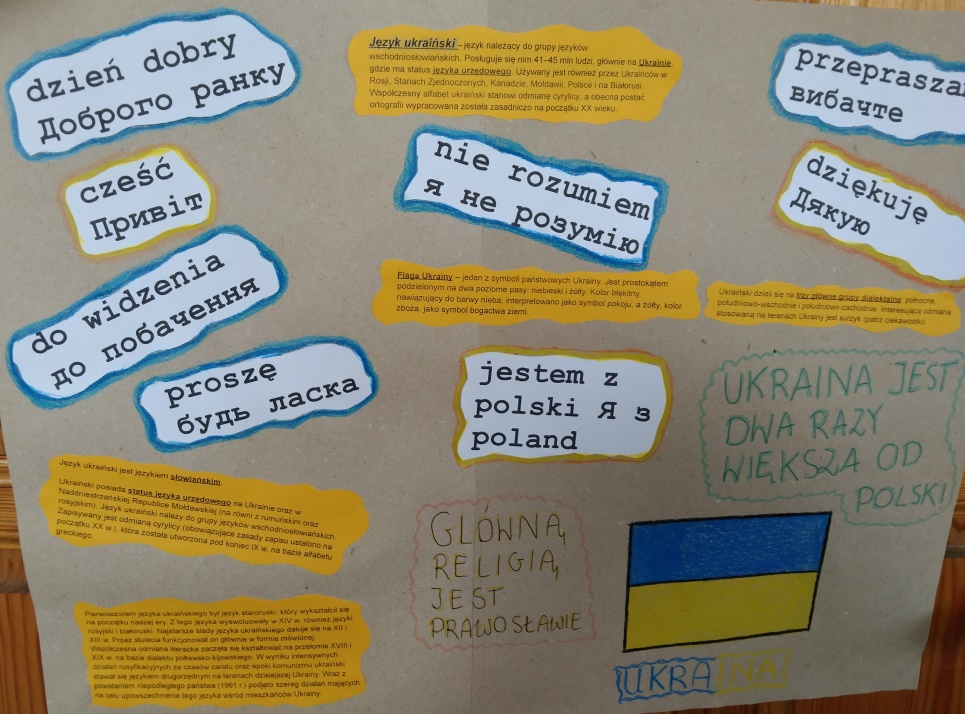 dzień dobry
Доброго ранку
cześć
Привіт
do widzenia
до побачення
proszę
будь ласка
Język ukraiński jest językiem słowiańskim.
Ukraiński posiada status języka urzędowego na Ukrainie oraz w
Naddniestrzańskiej Republice Mołdawskiej (na równi z rumuńskim oraz
rosyjskim). Język ukraiński należy do grupy języków wschodniosłowiańskich.
Zapisywany jest odmianą cyrylicy (obowiązujące zasady zapisu ustalono na
początku XX w.), która została utworzona pod koniec IX w. na bazie alfabetu
greckiego.
Pierwowzorem języka ukraińskiego był język staroruski, który wykształcił się
na początku naszej ery. Z tego języka wyewoluowały w XIV w. również języki
rosyjski i białoruski. Najstarsze ślady języka ukraińskiego datuje się na XII i
XIII w. Przez stulecia funkcjonował on głównie w formie mówionej.
Współczesna odmiana literacka zaczęła się kształtować na przełomie XVIII i
XIX w. na bazie dialektu połtawsko-kijowskiego. W wyniku intensywnych
działań rusyfikacyjnych za czasów caratu oraz epoki komunizmu ukraiński
stawał się językiem drugorzędnym na terenach dzisiejszej Ukrainy. Wraz z
powstaniem niepodległego państwa (1991 r.) podjęto szereg działań mających
na celu upowszechnienie tego języka wśród mieszkańców Ukrainy.
Język ukraiński – język należący do grupy języków
wschodniosłowiańskich. Posługuje się nim 41–45 mln ludzi, głównie na Ukrainie,
gdzie ma status języka urzędowego. Używany jest również przez Ukraińców w
Rosji, Stanach Zjednoczonych, Kanadzie, Mołdawii, Polsce i na Białorusi.
Współczesny alfabet ukraiński stanowi odmianę cyrylicy, a obecna postać
ortografii wypracowana została zasadniczo na początku XX wieku.
nie rozumiem
я не розумію
Flaga Ukrainy – jeden z symboli państwowych Ukrainy. Jest prostokątem
podzielonym na dwa poziome pasy: niebieski i żółty. Kolor błękitny,
nawiązujący do barwy nieba, interpretowano jako symbol pokoju, a żółty, kolor
zboża, jako symbol bogactwa ziemi.
jestem z
polski Я з
poland
GŁÓWNĄ
RELIGIĄ
JEST
PRAWOSŁAWIE
przeprasza
вибачте
dziękuję
Дякую
Ukraiński dzieli się na trzy główne grupy dialektalne: północne,
południowo-wschodnie i południowo-zachodnie. Interesującą odmianą
stosowaną na terenach Ukrainy jest surżyk (patrz ciekawostki).
UKRAINA JEST
DWA RAZY
WIĘKSZA OD
POLSKI
UKRAINA